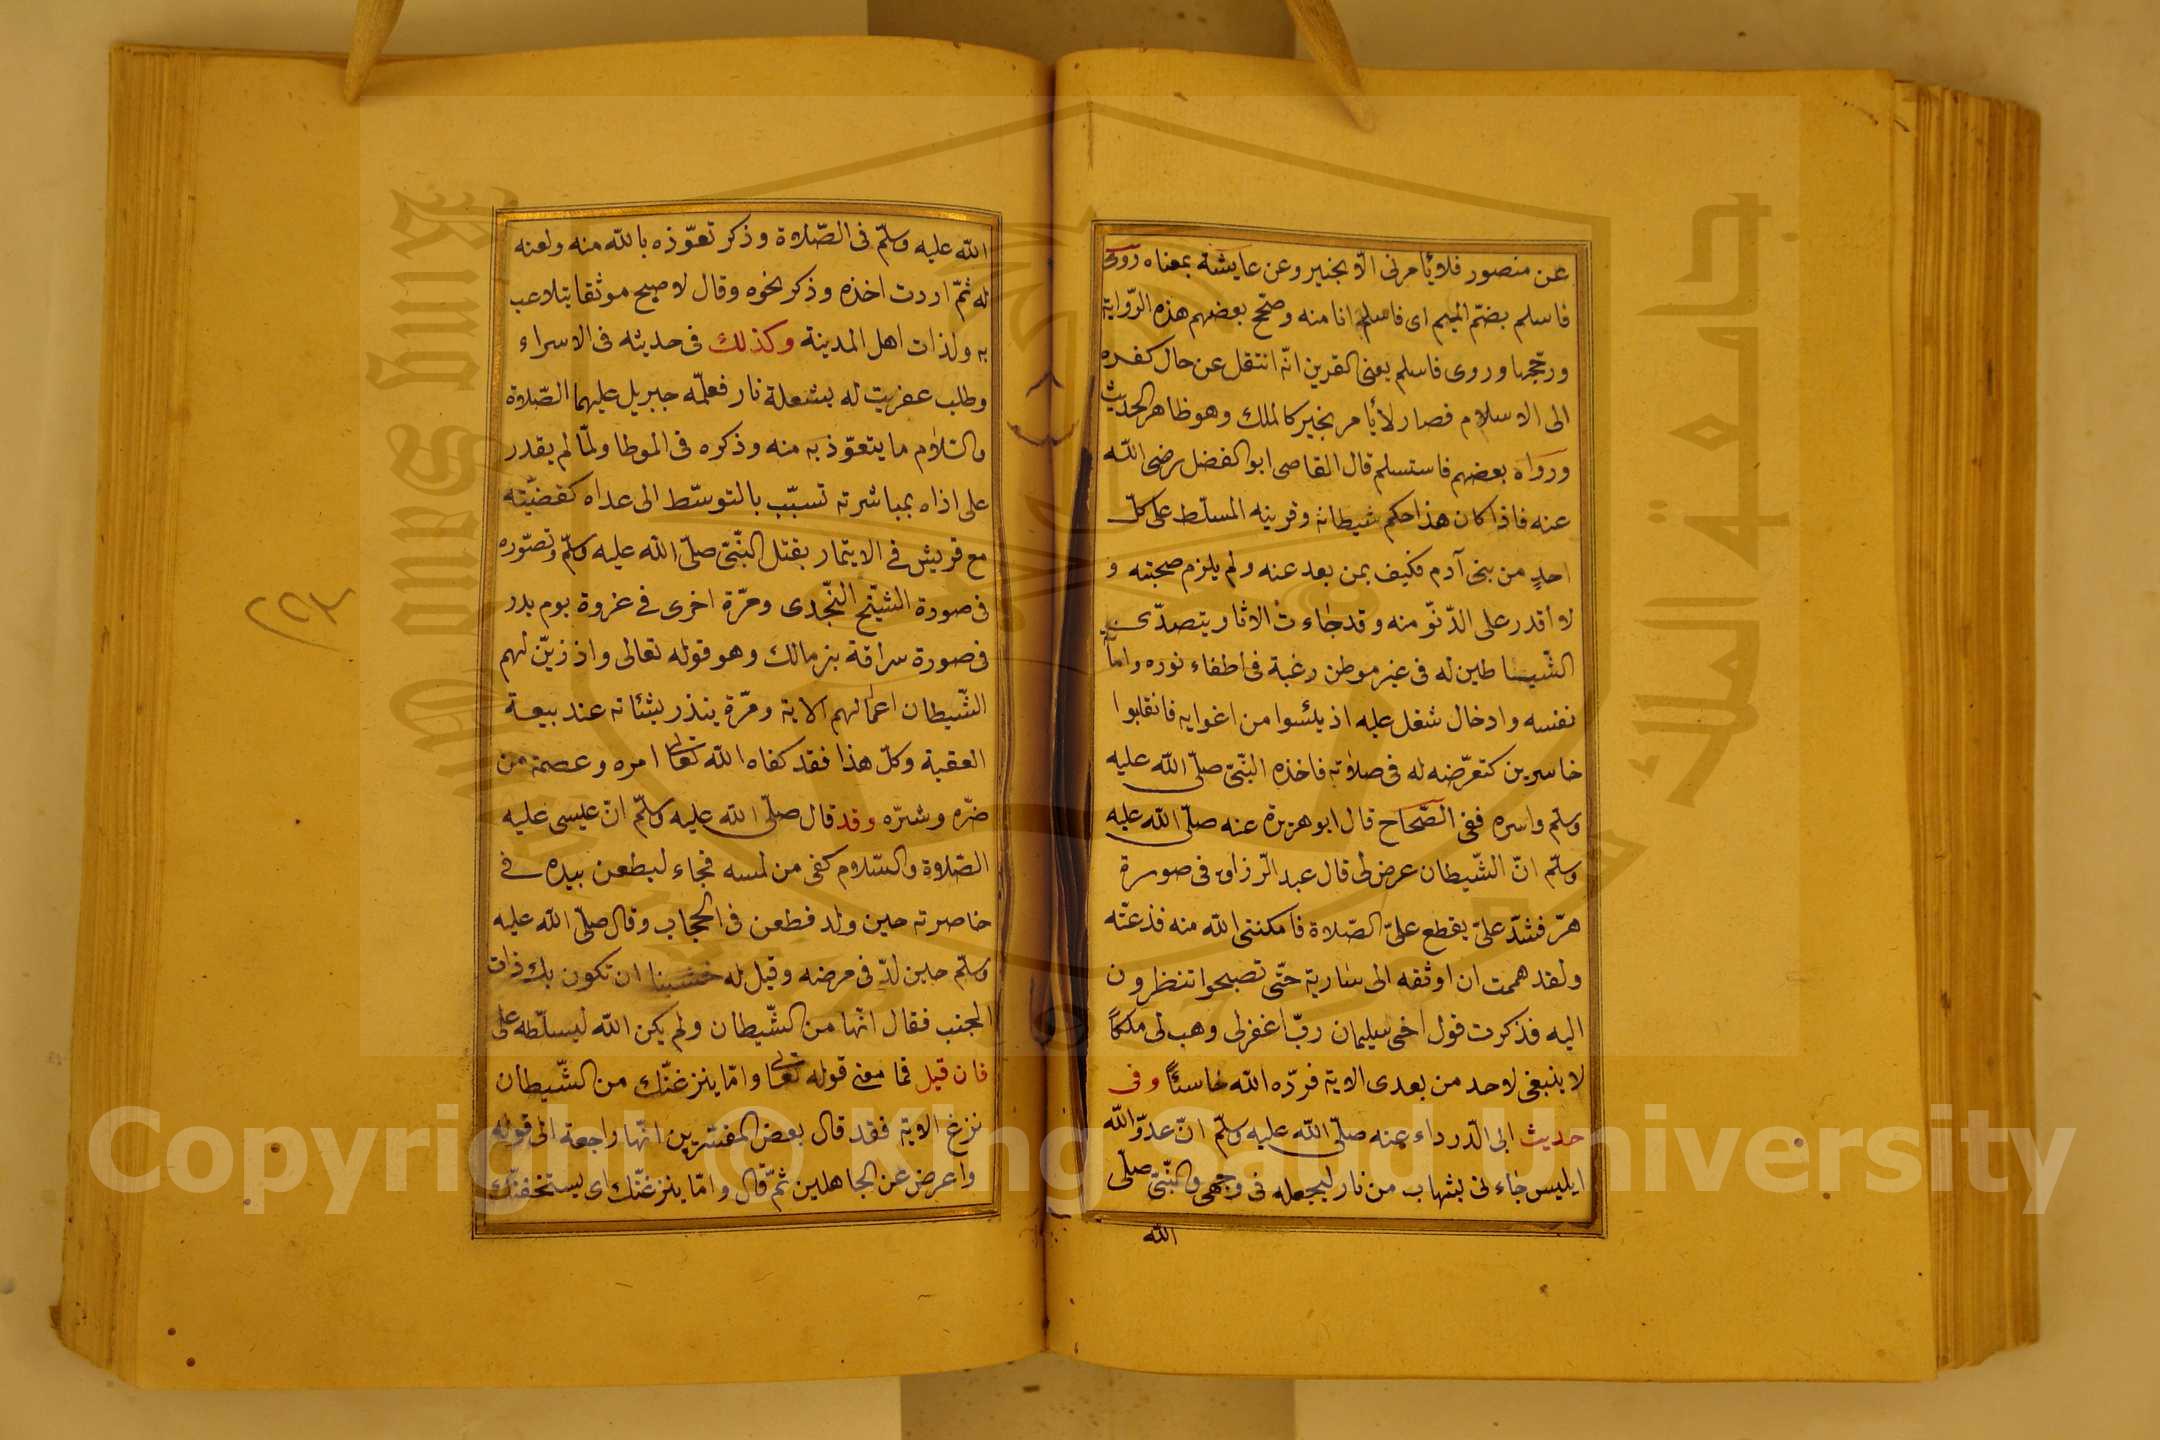 عن منصور فلا يأمرنى الّا بخير وعن عايشة بمعناه روى
فاسلم بضمّ الميم اى فاسلم انا منه وصحّح بعضهم هذه الرّواية
ورجّحها وروى فاسلم يعنى القرين انّه انتقل عن حال كفره
الى الاسلام فصار لا يأمر بخير كالملك وهو ظاهر الحديث
ورواه بعضهم فاستسلم قال القاضى ابو الفضل رضى الله
عنه فاذا كان هذا حكم شيطانه وقرينه المسلّط على كلّ
احدٍ من بنى آدم فكيف بمن بعد عنه ولم يلزم صحبته و
لا اقدر على الدّنوّ منه وقد جاءت الاثار بتصدّى
الشّياطين له فى غير موطن رغبة فى اطفاء نوره واماتة
نفسه وادخال شغل عليه اذ يئسوا من اغوايه فانقلبوا
خاسرين كتعرّضه له فى صلاته فاخذه النّبىّ صلّى الله عليه
وسلّم واسره ففى الصّحاح قال ابو هريرة عنه صلّى الله عليه
وسلّم انّ الشّيطان عرض لى قال عبد الرّزاق فى صورة
هرّ فشدّ علىّ يقطع علىّ الصّلاة فامكننى الله منه فذعتّه
ولقد هممت ان اوثقه الى سارية حتّى تصبحوا تنظرون
اليه فذكرت قول اخى سليمان ربّ اغفر لى وهب لى ملكًا
لا ينبغى لاحد من بعدى الاية فردّه الله خاسئًا وفى
حديث ابى الدّرداء عنه صلّى الله عليه وسلّم انّ عدوّ الله
ابليس جاءنى بشهاب من نار ليجعله فى وجهى والنّبىّ صلّى
الله
الله عليه وسلّم فى الصّلاة وذكر تعوّذه بالله منه ولعنه
له ثمّ اردت اخذه وذكر نحوه وقال لاصبح موثقا يتلاعب
به ولدات اهل المدينة وكذلك فى حديثه فى الاسراء
وطلب عفريت له بشعلة نار فعلّمه جبريل عليهما الصّلاة
والسّلام ما يتعوّذ به منه وذكره فى الموطا ولمّا لم يقدر
على اذاه بمباشرته تسبّب بالتوسّط الى عداه كقضيّته
مع قريش فى الايتمار بقتل النّبىّ صلّى الله عليه وسلّم وتصوّره
فى صورة الشّيخ النّجدى ومرّة اخرى فى غزوة يوم بدر
فى صورة سراقة بن مالك وهو قوله تعالى واذ زيّن لهم
الشّيطان اعمالهم الاية ومرّة ينذر بشانه عند بيعة
العقبة وكلّ هذا فقد كفاه الله تعالى امره وعصمه من
ضرّه وشرّه وقد قال صلّى الله عليه وسلّم انّ عيسى عليه
الصّلاة والسّلام كفى من لمسه فجاء ليطعن بيده فى
خاصرته حين ولد فطعن فى الحجاب وقال صلّى الله عليه
وسلّم حين لدّ فى مرضه وقيل له خشينا ان تكون بك ذات
الجنب فقال انّها من الشّيطان ولم يكن الله ليسلّطه على
فان قيل فما معنى قوله تعالى وامّا ينزغنّك من الشّيطان
نزغ الاية فقد قال بعض المفسّرين انّها راجعة الى قوله
واعرض عن الجاهلين ثمّ قال وامّا ينزغنّك اى يستخفّنّك
Copyright © King Saud University
King Saud University
جامعة الملك